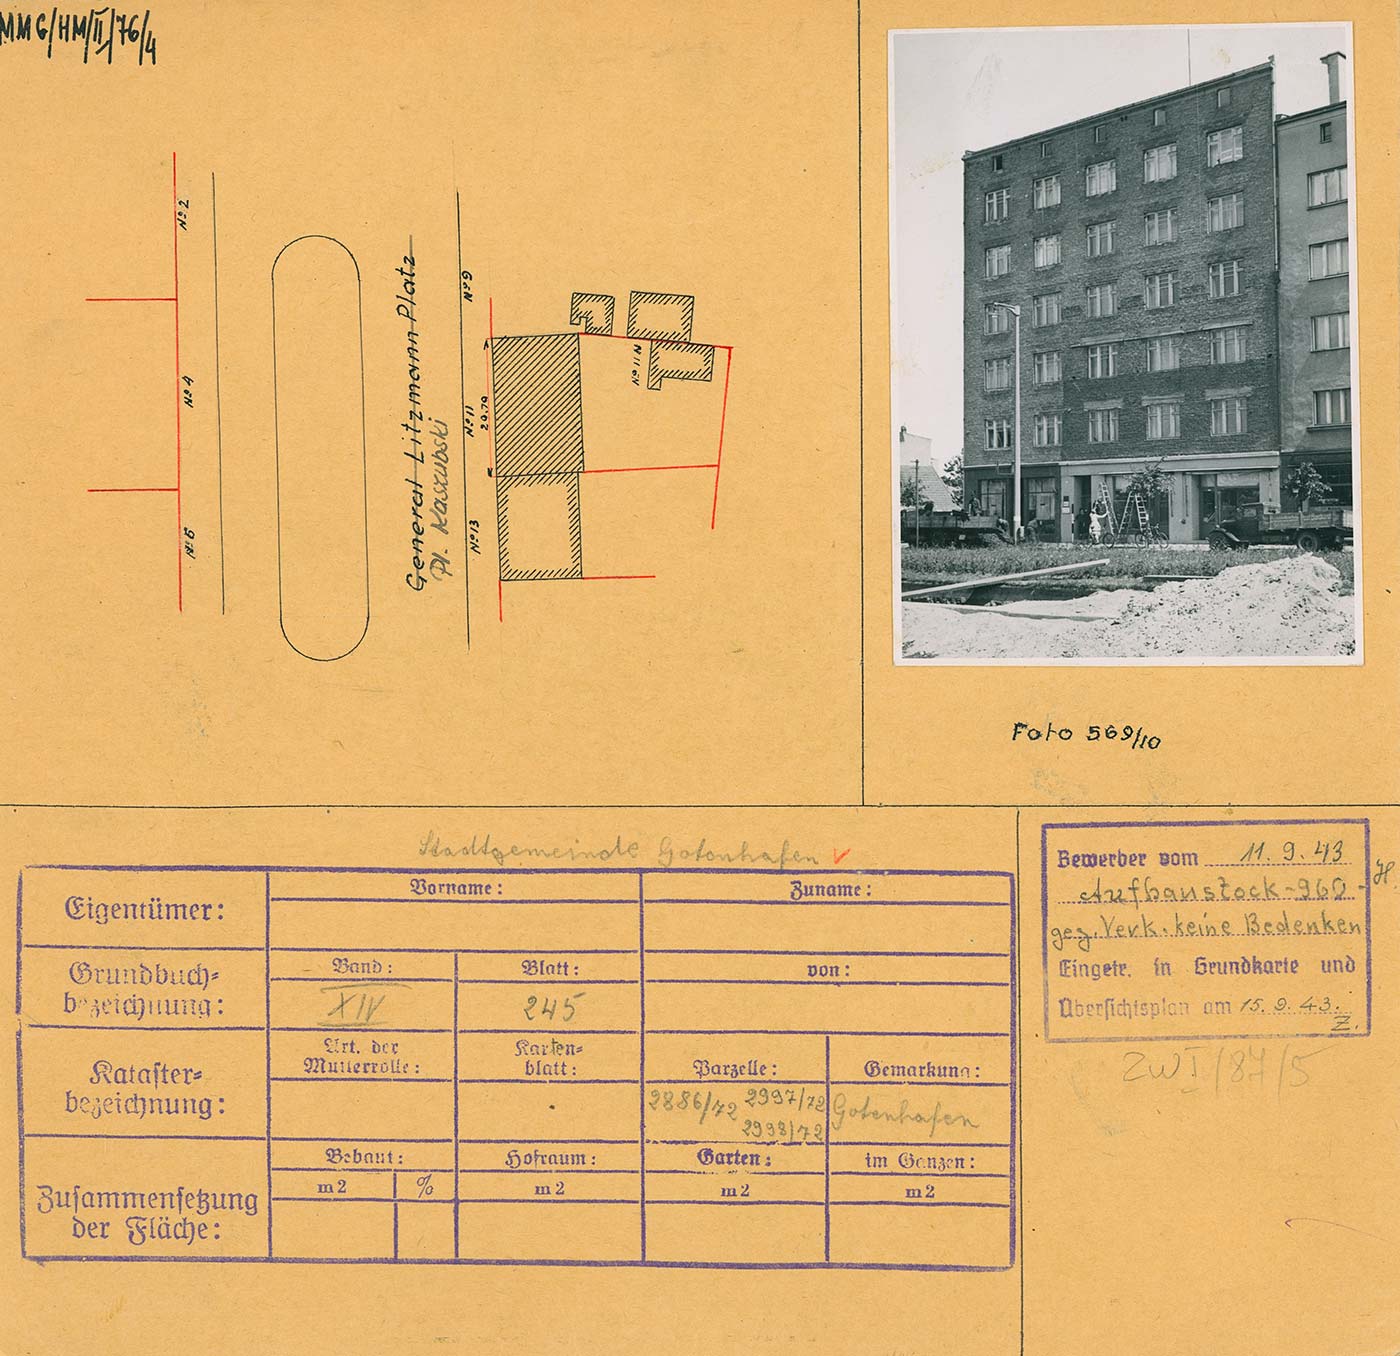 MMG/HM/II/76/4
No 2
No 4
No 6
General Litzmann Platz
Pl. Kaszubski
No 9
No 11
29.79
No 13
No 11
Foto 569/10
Stadtgemeinde Gotenhafen
Eigentümer:
Vorname:
Zuname:
Grundbuch-
bezeichnung:
Band:
Blatt:
von:
XIV
245
Kataster-
bezeichnung:
Art. der
Mutterrolle:
Karten-
blatt:
Parzelle:
Gemarkung:
2886/72 2997/72
2998/72
Gotenhafen
Zusammensetzung
der Fläche:
Bebaut:
Hofraum:
Garten:
im Ganzen:
m2
%
m2
m2
m2
Bewerber vom 11. 9. 43
Aufbaustock-960-
gez. Verk. keine Bedenken
Eingetr. in Grundkarte und
Übersichtsplan am 15. 9. 43.
Z.
ZW I/87/5